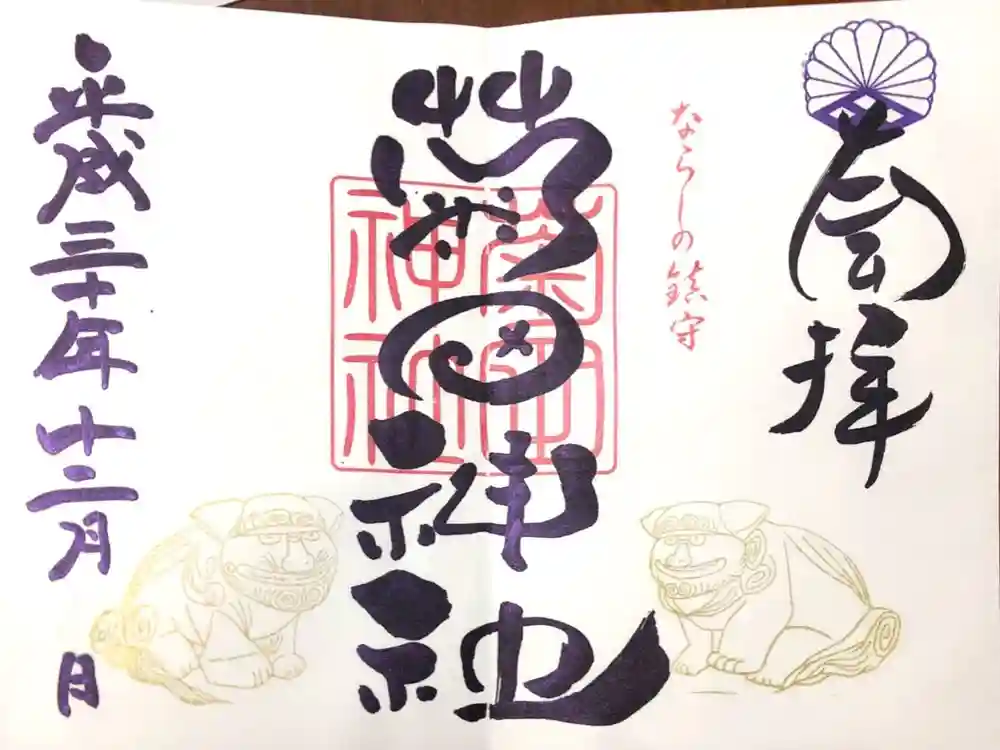 奉拝
ならしの鎮守
菊田神社
菊田神社
平成三十年十二月 日